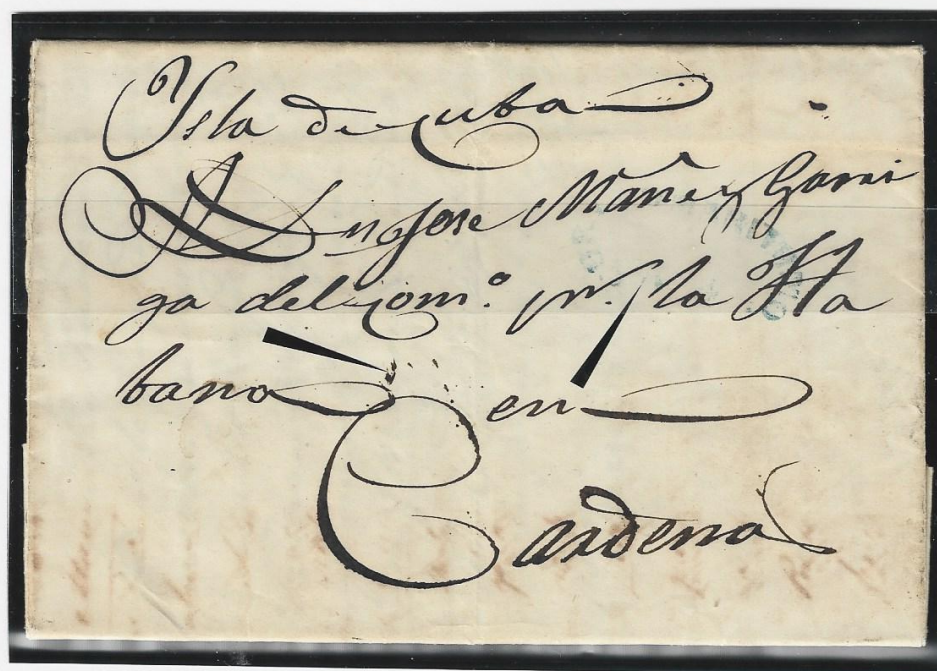 Ysla de Cuba
A Dn Jose Mañe y Garri
ga del Com.º pr. la Ha
bana en
Cardenas